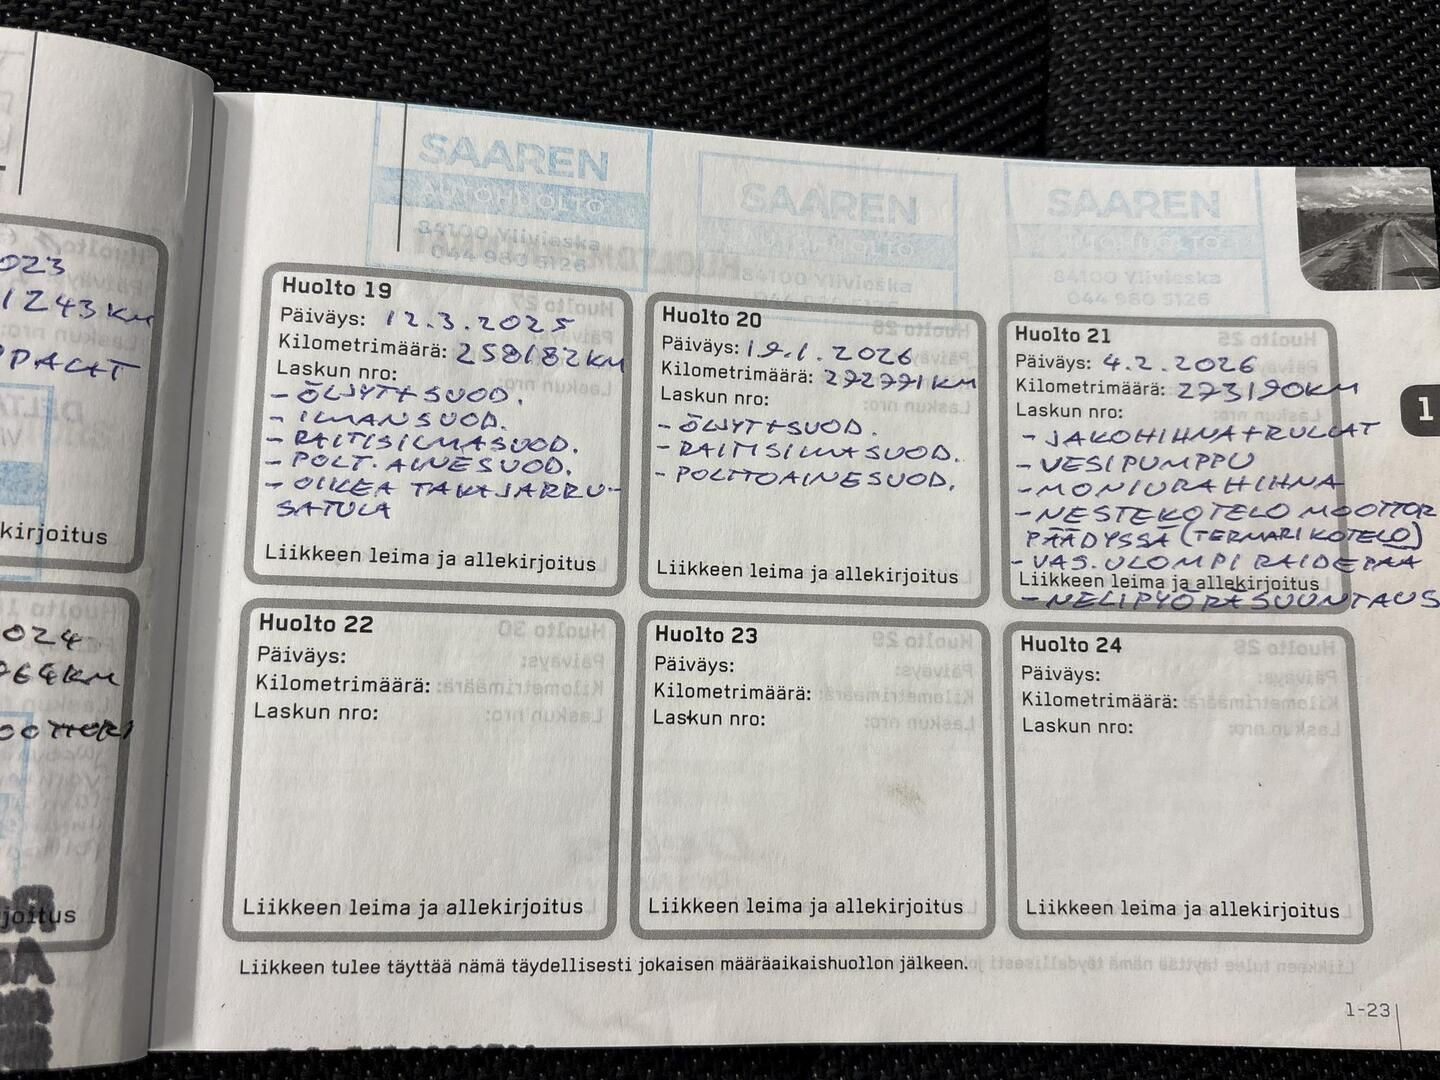 023
1243KM
PPACIT
kirjoitus
024
OOTTORI
joitus
SAAREN
AUTOHUOLTO
84100 Ylivieska
044 980 5126
SAAREN
AUTOHUOLTO
84100 Ylivieska
044 980 5126
SAAREN
AUTOHUOLTO
84100 Ylivieska
044 980 5126
Huolto 19
Päiväys: 12.3.2025
Kilometrimäärä: 258182KM
Laskun nro:
- ÖLJYT+SUOD.
- ILMANSUOD.
- RAITISILMASUOD.
- POLT.AINESUOD.
- OIKEA TAKAJARRU-
SATULA
Liikkeen leima ja allekirjoitus
Huolto 20
Päiväys: 19.1.2026
Kilometrimäärä: 272771KM
Laskun nro:
- ÖLJYT+SUOD.
- RAITISILMASUOD.
- POLTTOAINESUOD.
Liikkeen leima ja allekirjoitus
Huolto 21
Päiväys: 4.2.2026
Kilometrimäärä: 273190KM
Laskun nro:
- JAKOHIHNA+RULLAT
- VESIPUMPPU
- MONIURAHIHNA
- NESTEKOTELO MOOTTOR
PÄÄDYSSÄ (TERMARIKOTELO)
- VAS. ULOMPI RAIDEPÄÄ
Liikkeen leima ja allekirjoitus
- NELIPYÖRÄSUUNTAUS
1
Huolto 22
Päiväys:
Kilometrimäärä:
Laskun nro:
Liikkeen leima ja allekirjoitus
Huolto 23
Päiväys:
Kilometrimäärä:
Laskun nro:
Liikkeen leima ja allekirjoitus
Huolto 24
Päiväys:
Kilometrimäärä:
Laskun nro:
Liikkeen leima ja allekirjoitus
Liikkeen tulee täyttää nämä täydellisesti jokaisen määräaikaishuollon jälkeen.
1-23